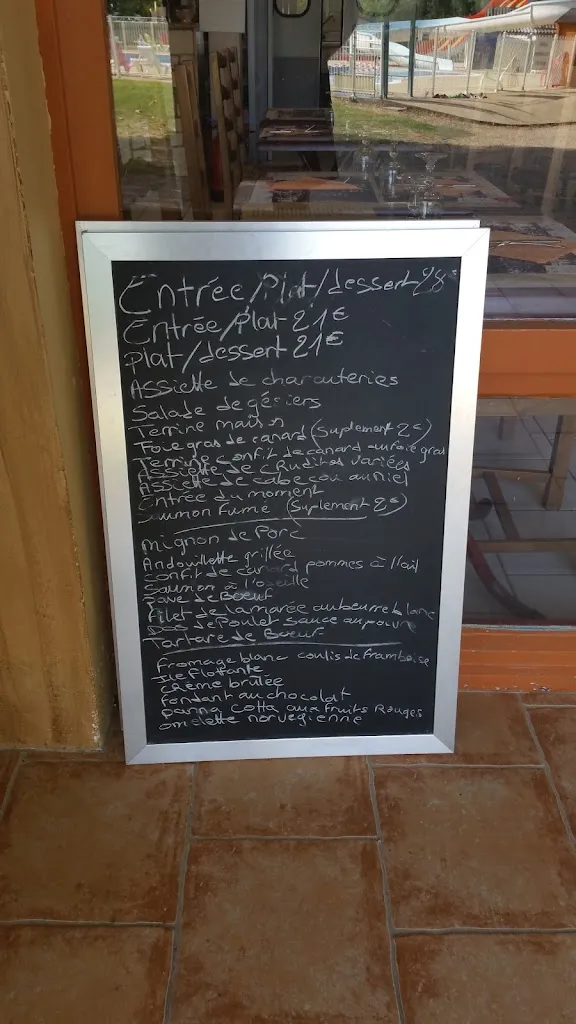 Entrée/Plat/dessert 28€
Entrée/Plat 21€
plat/dessert 21€
Assiette de charcuteries
Salade de gésiers
Terrine maison
Foie gras de canard (Suplement 2€)
Terrine confit de canard au foie gras
Assiette de crudites variées
Assiette de cabecou au miel
Entrée du moment
Saumon Fumé (Suplement 2€)
mignon de Porc
Andouillette grillée
confit de canard pommes à l'ail
Saumon à l'oseille
Pavé de Boeuf
Filet de la marée au beurre blanc
de Poulet sauce au poivre
Tartare de Boeuf
Fromage blanc coulis de framboise
Ile Flotante
crème brulée
fondant au chocolat
panna cotta aux fruits Rouges
omelette norvegienne